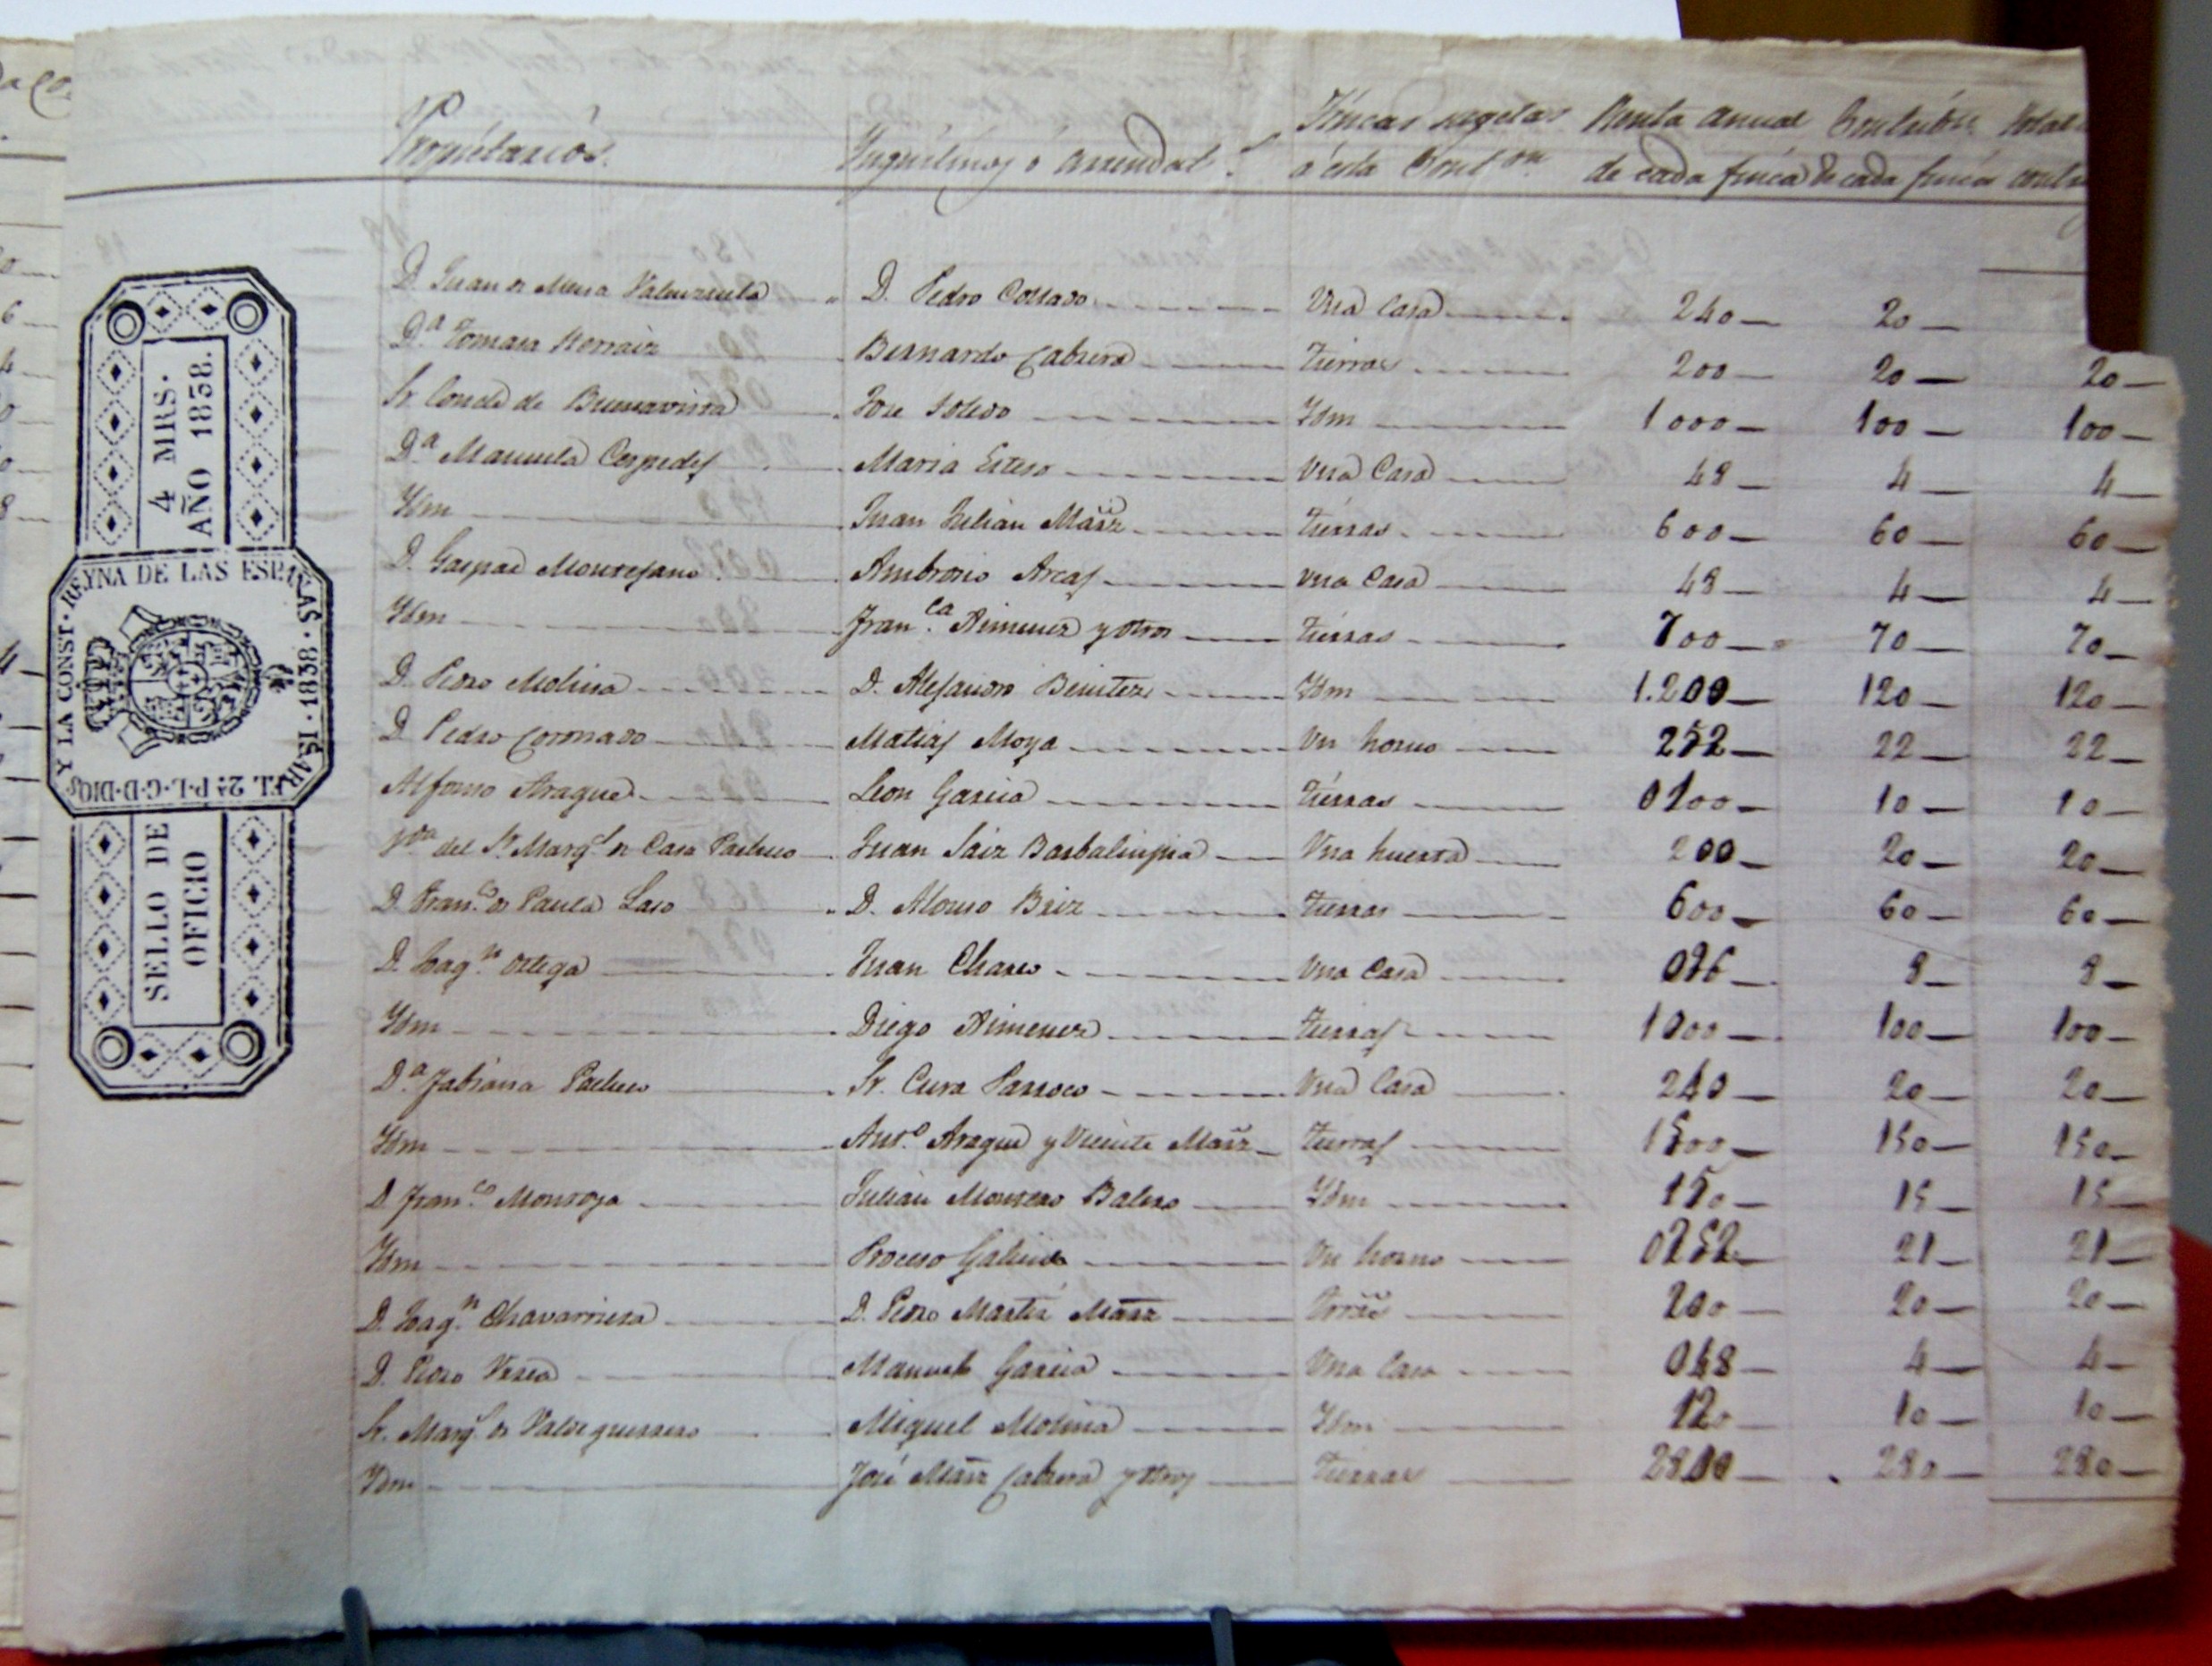 Propiétarios.	Inquilinos ó arrendat.s	Fincas sugetas á ésta Cont.on	Renta anual de cada finca	Contribn. de cada finca	Total
D Juan de Mena Valenzuela	D. Pedro Collado	Una Casa	240	20
D.a Tomasa Herraiz	Bernardo Cabrera	Tierras	200	20	20
Sr. Conde de Buenavista	Jose Toledo	Ydm	1000	100	100
D.a Manuela Cespedes	Maria Esteso	Una Casa	48	4	4
Ydm	Juan Julian Mãrz	Tierras	600	60	60
D. Gaspar Montejano	Ambrosio Arcas	una Casa	48	4	4
Ydm	Fran.ca Ximenez y otros	Tierras	700	70	70
D. Pedro Molina	D. Alejandro Benitez	Ydm	1.200	120	120
D Pedro Coronado	Matias Moya	Un horno	252	22	22
Alfonso Araque	Leon Garcia	Tierras	0100	10	10
V.da del Sr. Marq.s de Casa Pacheco	Juan Saiz Barbalimpia	Una huerta	200	20	20
D. Fran.co de Paula Laso	D. Alonso Briz	Tierras	600	60	60
D. Joaq.n Ortega	Juan Charco	Una Casa	096	8	8
Ydm	Diego Ximenez	Tierras	1000	100	100
D.a Fabiana Pacheco	Sr. Cura Parroco	Una Casa	240	20	20
Ydm	Ant.o Araque y Vicente Mãrz	Tierras	1500	150	150
D Fran.co Monroya	Julian Montero Balero	Ydm	150	15	15
Ydm	Proceso Galindo	Un horno	0252	21	21
D. Joaq.n Chavarrieta	D. Pedro Martir Mãrz	200	20	20
D. Pedro	Manuel Garcia	Una Casa	048	4	4
Sr. Marq.s de Valdeguerrero	Miguel Molina	Ydm	120	10	10
Ydm	José Mãrz Cabrera y otros	Tierras	2800	280	280
4 MRS.
AÑO 1838.
REYNA DE LAS ESPAÑAS · 1838 · ISABEL 2ª P·L·G·D·DIOS Y LA CONST·
SELLO DE
OFICIO